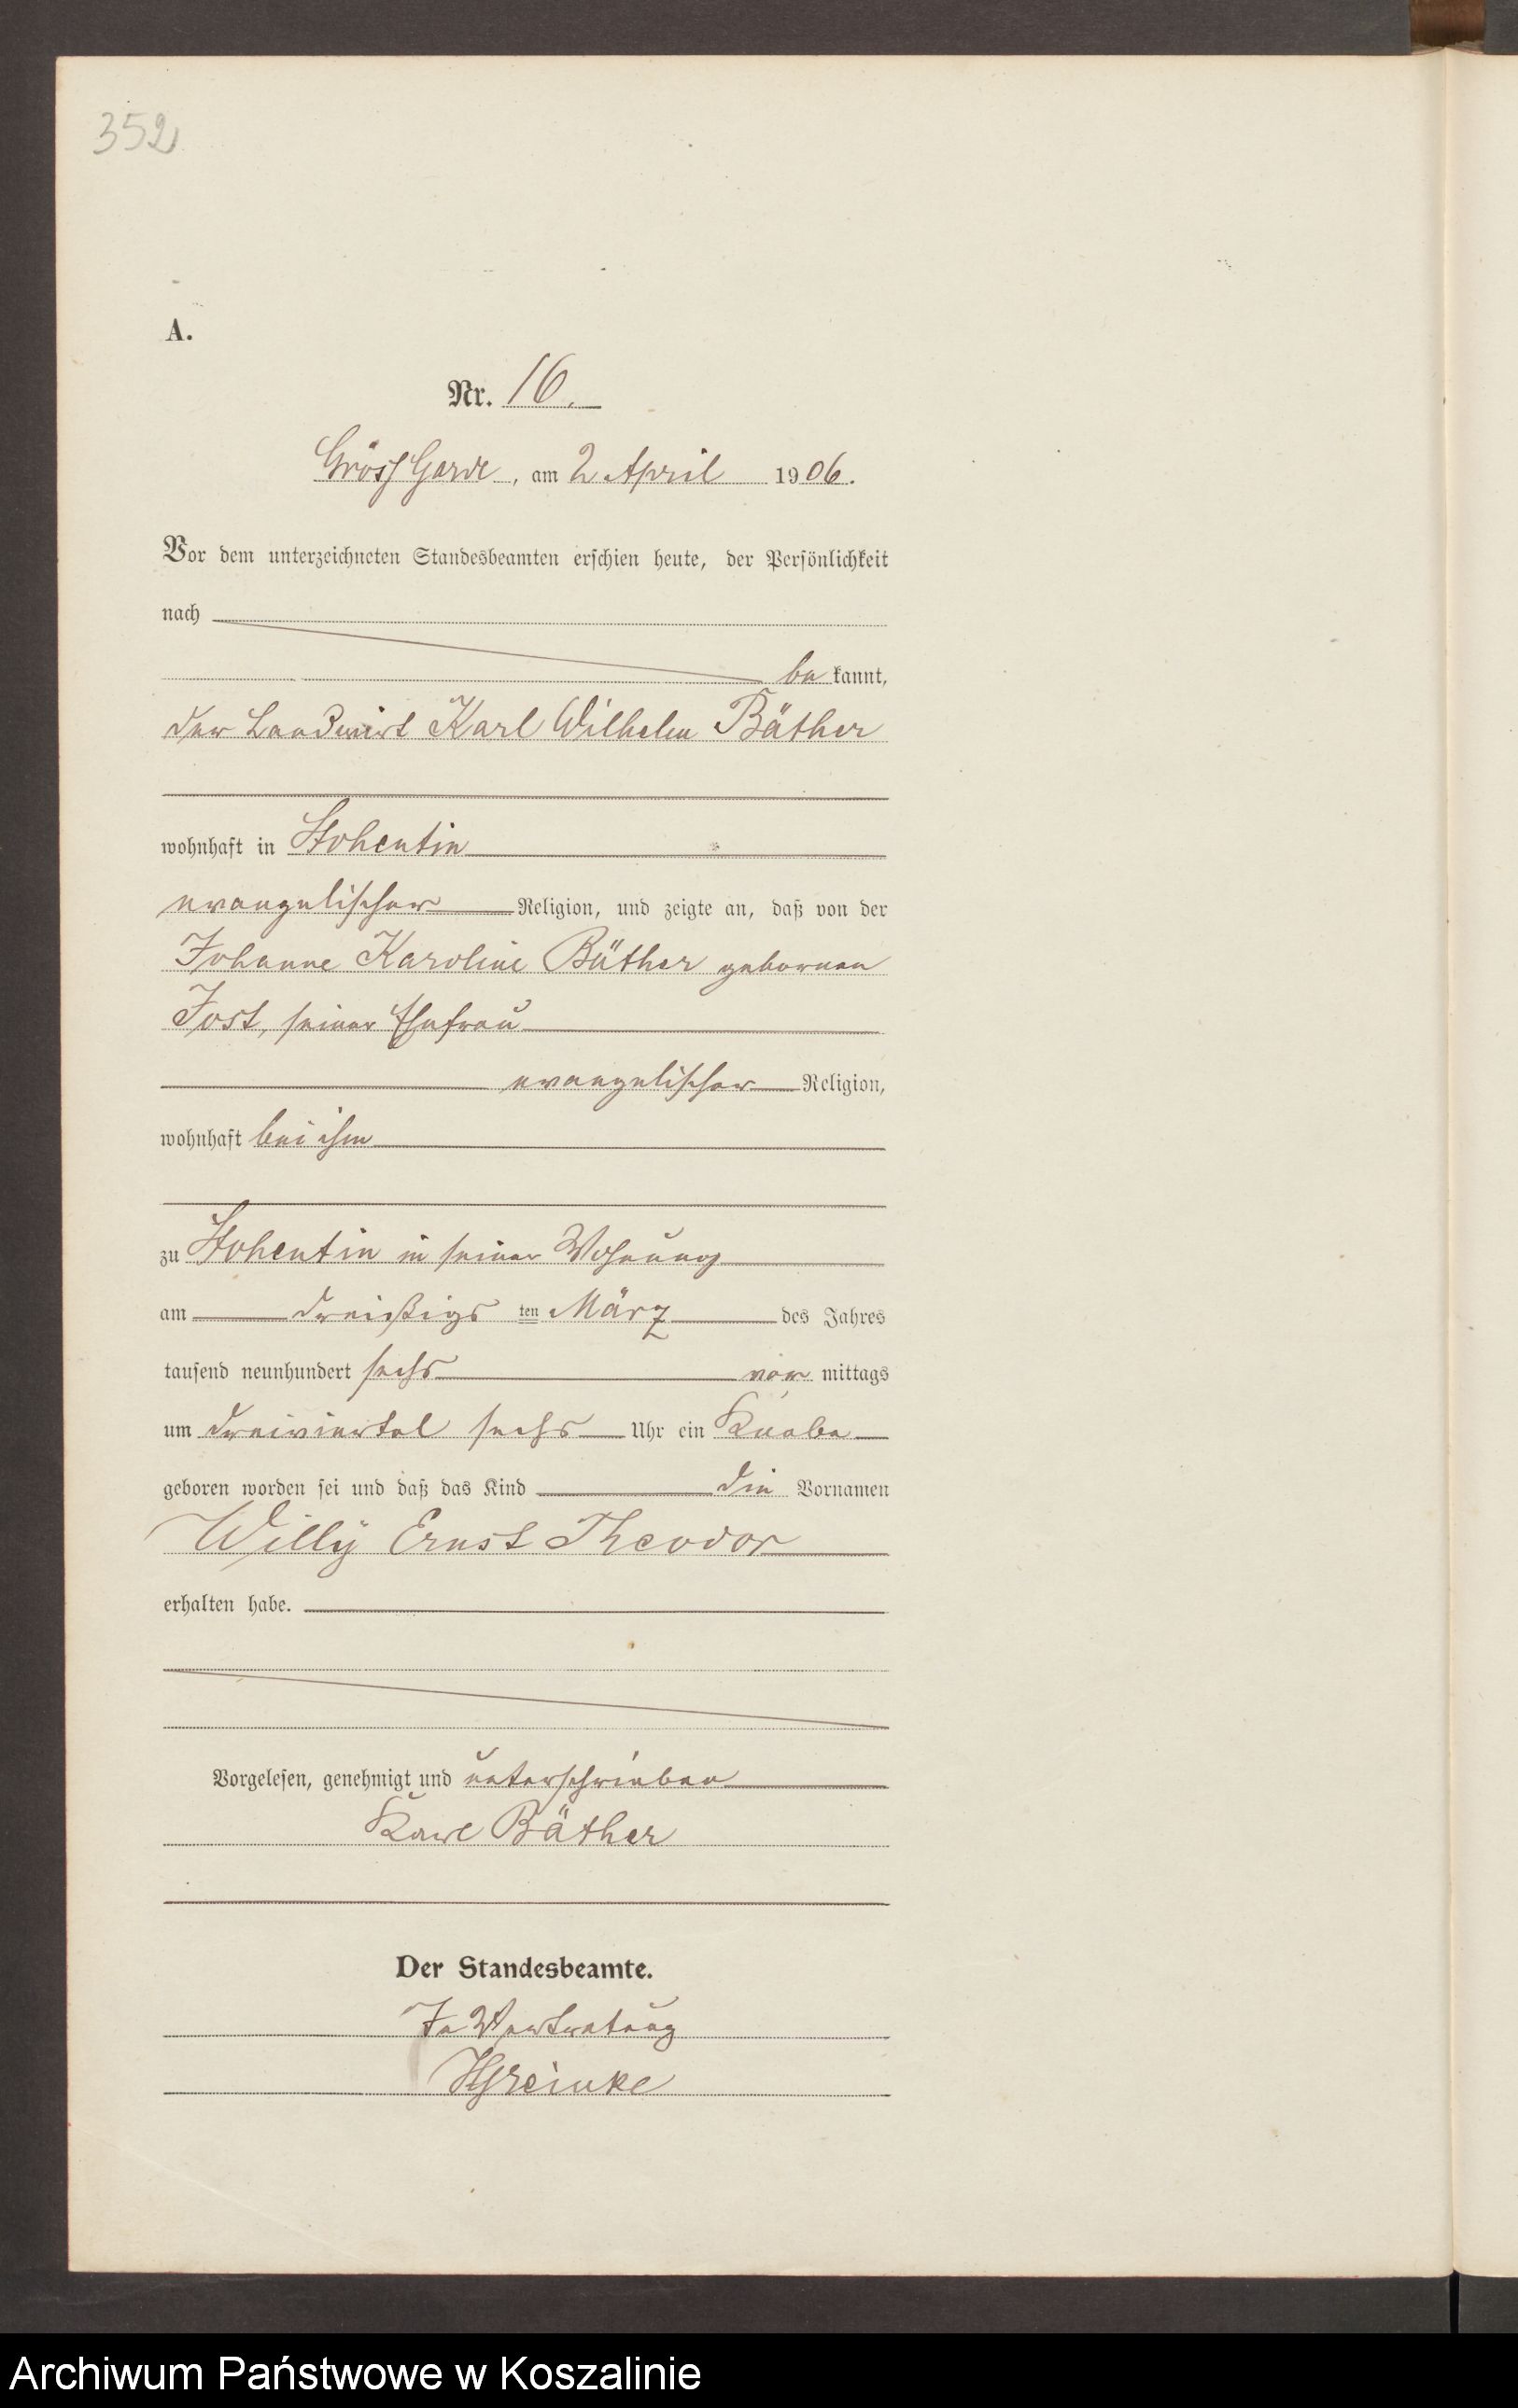 352
A.
Nr. 16.
Gross Garde, am 2 April 1906.
Vor dem unterzeichneten Standesbeamten erschien heute, der Persönlichkeit
nach
be kannt,
der Landwirt Karl Wilhelm Bäther
wohnhaft in Stohentin
evangelischer Religion, und zeigte an, daß von der
Johanne Karoline Bäther gebornen
Jost, seiner Ehefrau
evangelischer Religion,
wohnhaft bei ihm
zu Stohentin in seiner Wohnung
am dreißigs ten März des Jahres
tausend neunhundert sechs vor mittags
um dreiviertel sechs Uhr ein Knabe
geboren worden sei und daß das Kind die Vornamen
Willy Ernst Theodor
erhalten habe.
Vorgelesen, genehmigt und unterschrieben
Karl Bäther
Der Standesbeamte.
In Vertretung